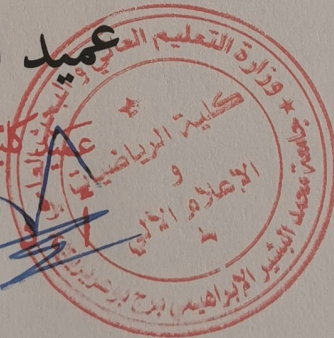 عميد
وزارة التعليم العالي والبحث العلمي
كلية الرياضيات
و
الإعلام الآلي
جامعة محمد البشير الإبراهيمي برج بوعريريج